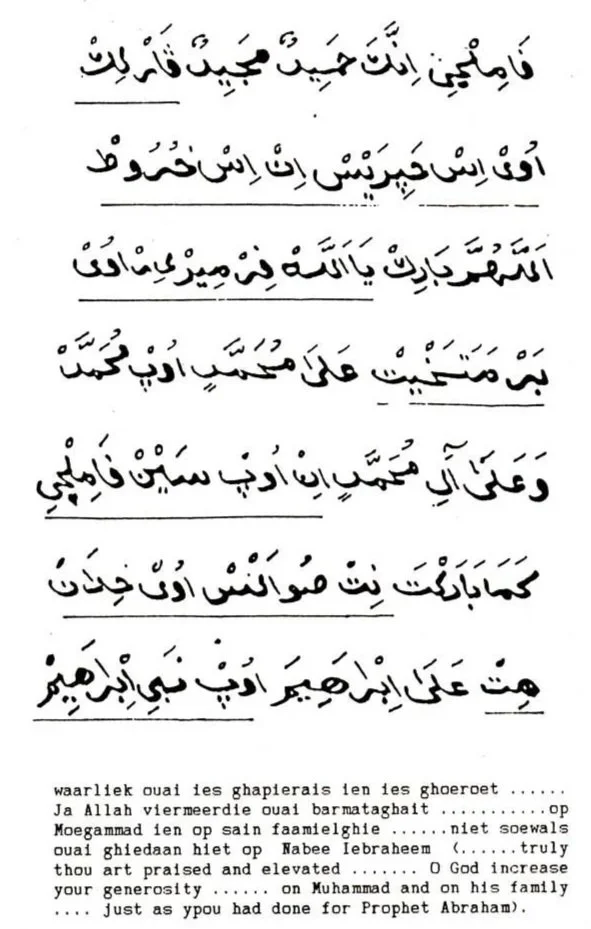 فَامِلْجِيْ اِنَّكَ حَمِيدٌ مَجِيدٌ ڤَارْلِكْ
اُوَىْ اِسْ خَپِرَيْسْ اِنْ اِسْ خُرُوطْ
اَللَّهُمَّ بَارِكْ يَا اَللَّهْ اُوَىْ
بَرْمَتَخَيْتْ عَلَى مُحَمَّدٍ اُوپْ مُحَمَّدْ
وَعَلَى آلِ مُحَمَّدٍ اِنْ اُوپْ سَيْنْ فَامِلْجِي
كَمَا بَارَكْتَ نِتْ اُوَىْ خِدَانْ
هِتْ عَلَى اِبْرَاهِيمَ اُوپْ نَبِي اِبْرَاهِيمْ
waarliek ouai ies ghapierais ien ies ghoeroet ......
Ja Allah viermeerdie ouai barmataghait ...........op
Moegammad ien op sain faamielghie ......niet soewals
ouai ghiedaan hiet op Nabee Iebraheem (......truly
thou art praised and elevated ....... O God increase
your generosity ...... on Muhammad and on his family
.... just as ypou had done for Prophet Abraham).